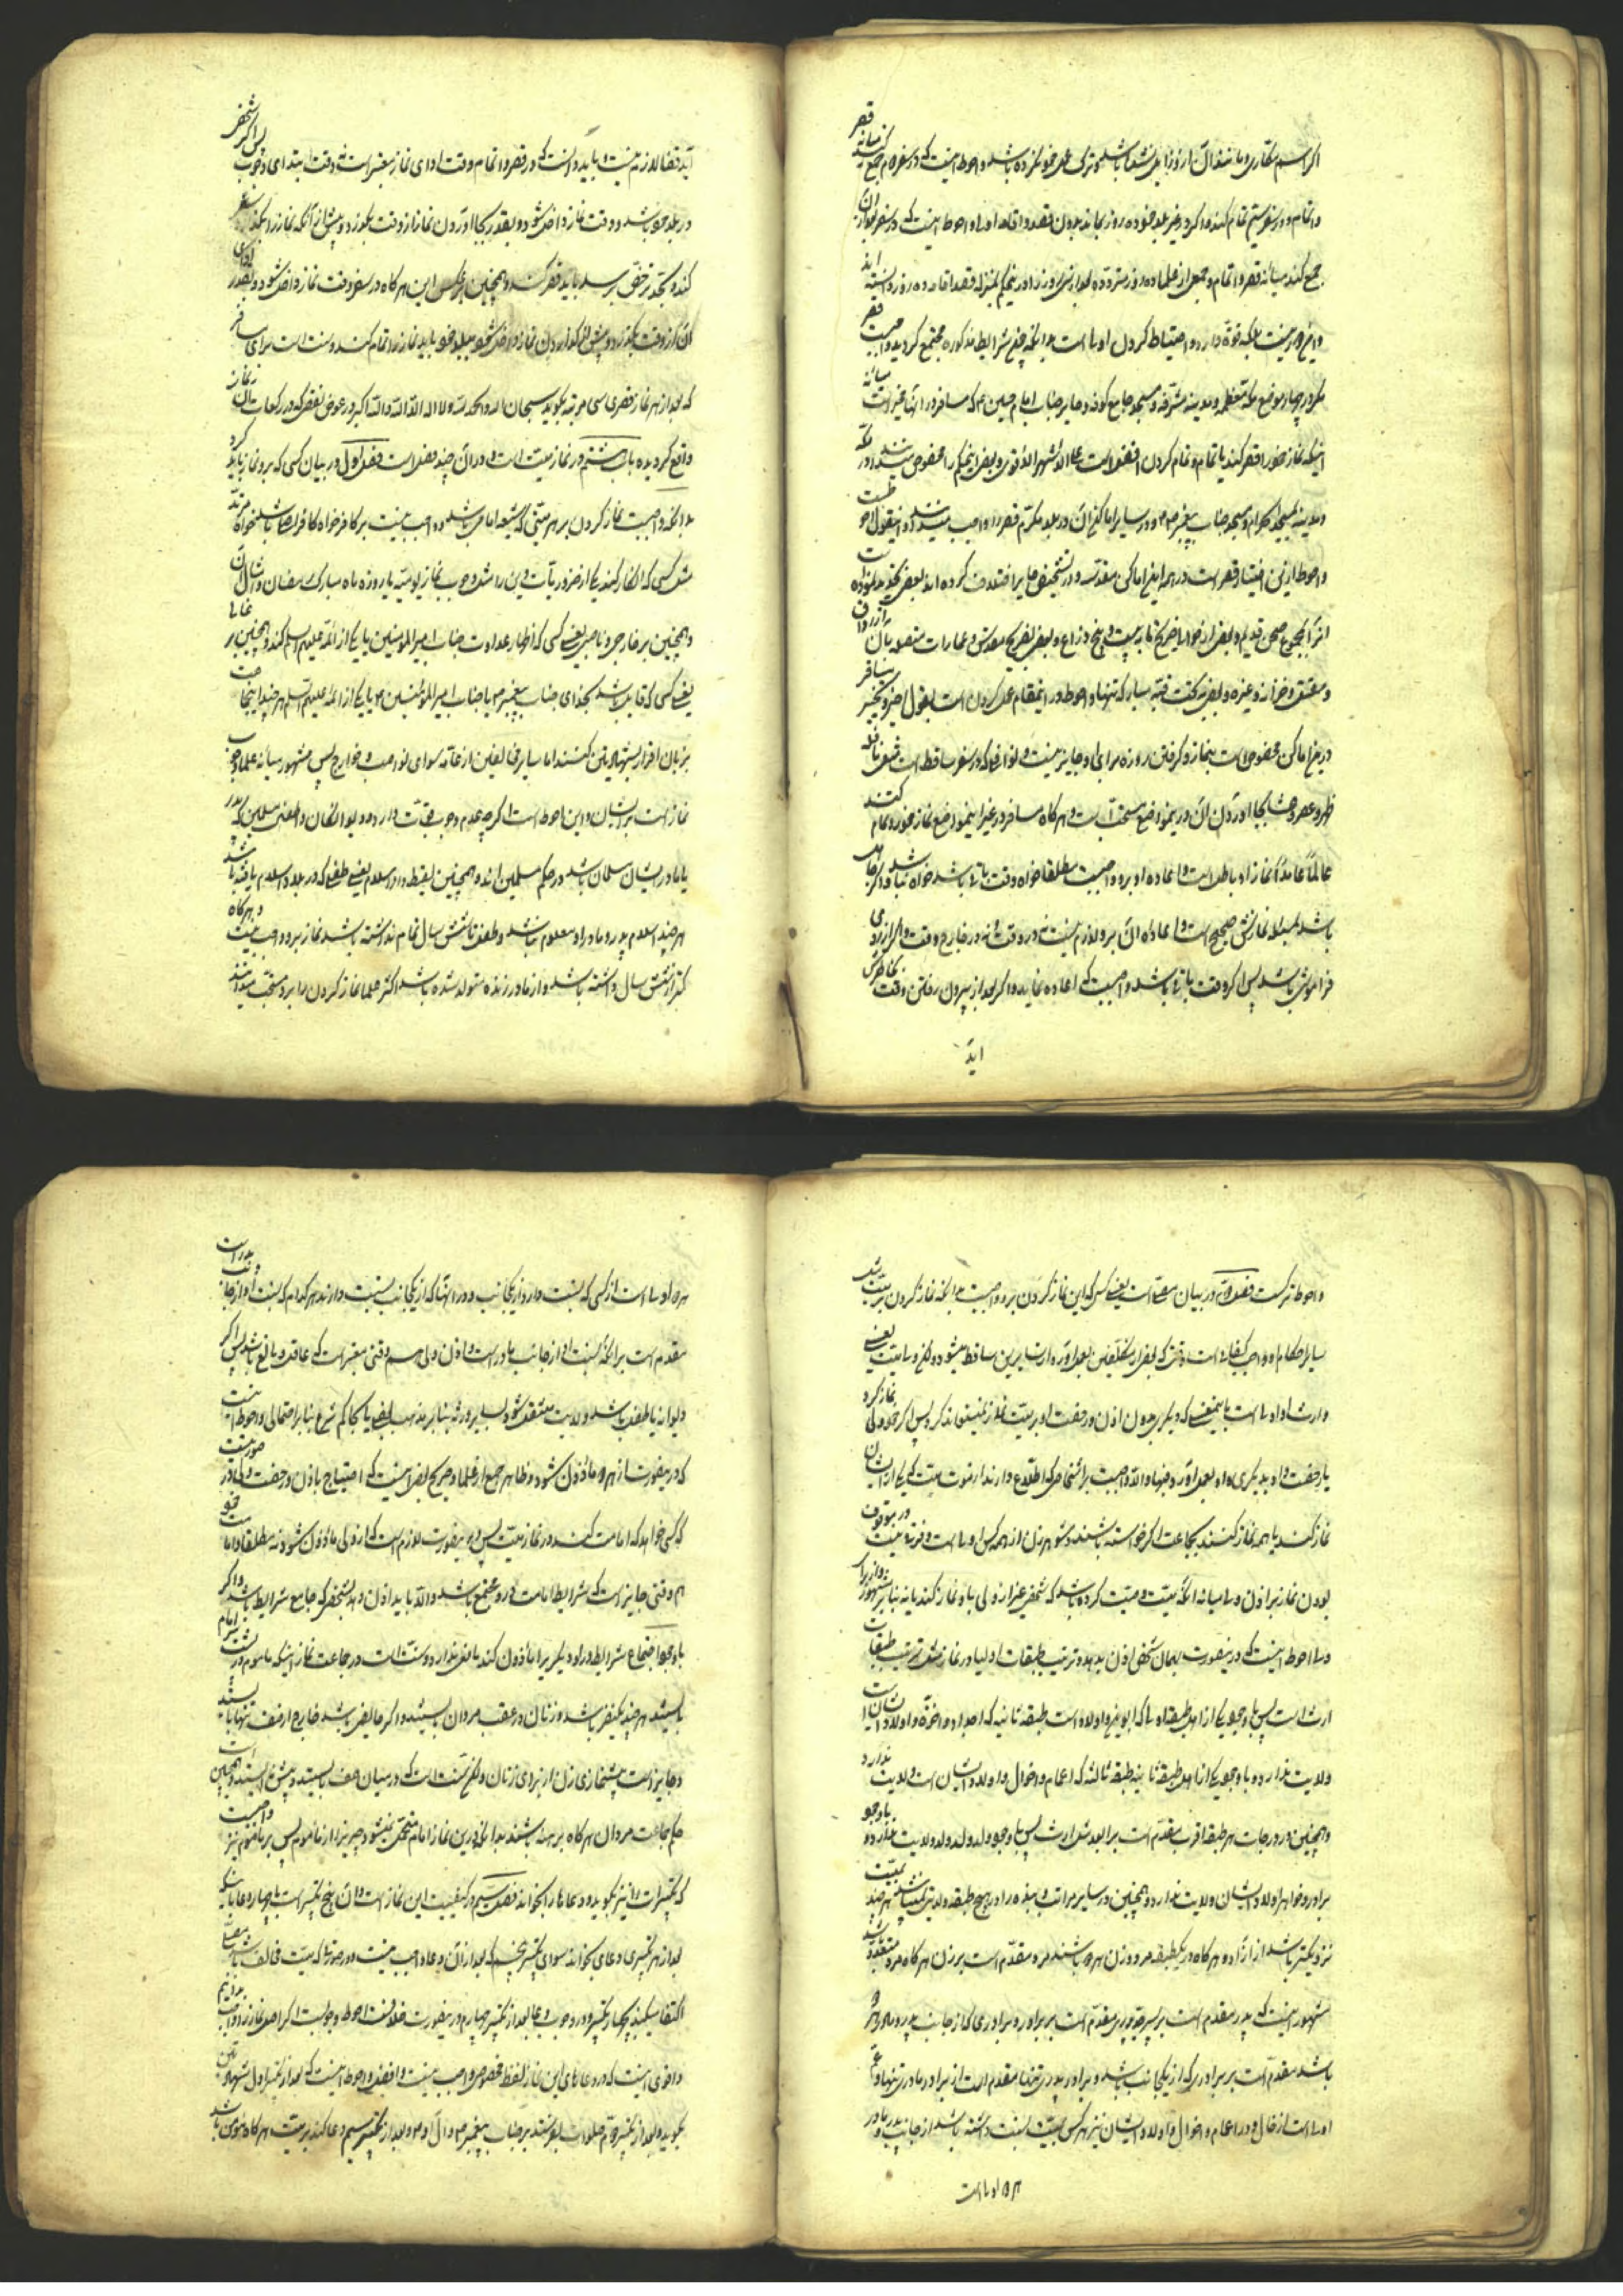 اکر اسم مکاری و مانند آن از او زایل نشده باشد و ترک عمل خود نکرده باشد و احوط اینست که در سفر دوم جمع کند میانه قصر
و اتمام و در سفر سیم تمام کند و اکر در غیر بلد خود ده روز بماند بدون قصد اقامه اولی و احوط اینست که در سفر بعد از آن
جمع کند میانه قصر و اتمام و جمعی از علما ده روز متردد بعد از سی روز را در حکم بمنزله قصد اقامه ده روز دانسته اند
و این دور نیست بلکه قوة دارد و احتیاط کردن اولی است بدانکه چون شرایط مذکوره مجتمع کردید واجبست قصر
مکر در چهار موضع مکه معظمه و مدینه مشرفه و مسجد جامع کوفه و حایر جناب امام حسین ع که مسافر در آنها مخیر است میانه
اینکه نماز خود را قصر کند یا تمام و تمام کردن افضل است علی الاشهر الاقوی و بعضی این حکم را مخصوص میدانند در مکه
و مدینه بمسجد الحرام و مسجد جناب پیغمبر ص و در سایر اماکن آن دو بلد مکرم قصر را واجب میدانند و این قول احوطست
و احوط از این اختیار قصر است در همه این اماکن مقدسه و در تشخیص حایر اختلاف کرده اند بعضی تحدید نموده
در این اماکن مخصوص است بنماز و کرفتن روزه مرا بها جایز نیست و نوافلی که در سفر ساقط است مثل نافله
ظهر و عصر و عشا بجا آوردن آن در این مواضع مستحب است و هر کاه مسافر در غیر این مواضع نماز خود را تمام کند
عالماً عامداً نماز او باطل است و اعاده او بر او واجبست مطلقا خواه وقت باقی باشد خواه نباشد و اکر جاهل
باشد بمسئله نمازش صحیح است و اعاده آن بر او لازم نیست نه در وقت و نه در خارج وقت و اکر از روی
فراموشی باشد پس اکر وقت باقی باشد واجبست که اعاده نماید و اکر بعد از بیرون رفتن وقت بخاطرش
آید
آید قضا لازم نیست و باید دانست که در قصر و اتمام وقت ادای نماز معتبر است نه وقت ابتدای وجوب پس اکر شخصی
در بلد خود باشد و وقت نماز داخل شود و بقدر بجا آوردن نماز از وقت بکذرد و پیش از آنکه نماز را بکند سفر
کند و بحد ترخص برسد باید قصر کند و همچنین بر عکس این هر کاه در سفر وقت نماز داخل شود و بقدر ادای
آن از وقت بکذرد و پیش از کذاردن نماز داخل شود ببلد خود باید نماز را تمام کند و سنت است برای مسافر
که بعد از هر نماز قصری سی مرتبه بکوید سبحان الله و الحمد لله و لا اله الا الله و الله اکبر در عوض نقصی که در رکعات آن نماز
واقع کردیده باب هشتم در نماز میت است و در آن چند فصل است فصل اول در بیان کسی که بر او نماز باید کرد
بدانکه واجبست نماز کردن بر هر میتی که شیعه امامی باشد و واجب نیست بر کافر خواه کافر اصلی باشد خواه مرتد
مثل کسی که انکار کند یکی از ضروریات دین را مثل وجوب نماز یومیه یا روزه ماه مبارک رمضان و امثال آن
و همچنین بر خارجی و ناصبی یعنی کسی که اظهار عداوت جناب امیرالمؤمنین یا یکی از ائمه علیهم السلم کند و همچنین بر غالی
یعنی کسی که قایل باشد بخدای جناب پیغمبر ص یا جناب امیرالمؤمنین ع یا یکی از ائمه علیهم السلم هر چند اینجماعت
بزبان اقرار بشهادتین کنند اما سایر مخالفین از عامه سوای نواصب و خوارج پس مشهور میانه علما وجوب
نماز است بر ایشان و این احوط است اکر چه عدم وجوب قوت دارد و دیوانکان و اطفال مسلمین که پدر
یا مادر ایشان مسلمان باشد در حکم مسلمین اند و همچنین لقیط دار اسلام یعنی طفلی که در بلاد اسلام یافته باشد
هر چند اسلام پدر و مادر او معلوم نباشد و طفل تا شش سال تمام نداشته باشد نماز بر او واجب نیست و هر کاه
کمتر از شش سال داشته باشد و از مادر زنده متولد شده باشد اکثر علما نماز کردن را بر او مستحب میدانند
و احوط ترکست فصل دویم در بیان مصلی است یعنی کسی که این نماز کردن بر او واجبست بدانکه نماز کردن بر میت مثل
سایر احکام او واجب کفایی است وقتی که بعضی از مکلفین بعمل آورد از سایرین ساقط میشود و لیکن ولی میت یعنی
وارث او اولی است باینمعنی که دیکری بدون اذن و رخصت او بر میت نماز نمیتواند کرد پس اکر خود ولی نماز کرد
یا رخصت داد بدیکری و او بعمل آورد فبها و الا واجبست بر اشخاصی که اطلاع دارند از موت میت که یکی از ایشان
نماز کند یا همه نماز کنند بجماعت اکر خواسته باشند و شوهر زن از همه کس اولی است و فرقی نیست در موقوف
بودن نماز بر اذن ولی میانه آنکه میت وصیت کرده باشد که شخصی غیر از ولی باو نماز کند یا نه بنا بر مشهور
ولی احوط اینست که در اینصورت بهمان شخص اذن بدهد و ترتیب طبقات اولیا در نماز مثل ترتیب طبقات
ارث است پس با وجود یکی از اهل طبقه اولی که ابوین و اولاد است طبقه ثانیه که اجداد و اخوة و اولاد ایشان است
ولایت ندارد و با وجود یکی از اهل طبقه ثانیه طبقه ثالثه که اعمام و اخوال و اولاد ایشان است ولایت ندارد
و همچنین در درجات هر طبقه اقرب مقدم است بر ابعد مثل ارث پس با وجود ولد ولد ولد ولایت ندارد و با وجود
برادر و خواهر اولاد ایشان ولایت ندارد و همچنین در سایر مراتب
مشهور اینست که پدر مقدم است بر پسر و جد پدری مقدم است بر برادر و برادری که از جانب پدر و مادر هر دو
باشد مقدم است بر برادری که از یکجانب باشد و برادر پدری تنها مقدم است از برادر مادری تنها و عم
اولی است از خال و در اعمام و اخوال و اولاد ایشان نیز هر کس بمیت نسبت داشته باشد از جانب پدر و مادر
هر دو اولی است
هر دو اولی است از کسی که نسبت دارد از یکجانب و در آنها که از یکجانب نسبت دارند هر کدام که نسبت او از جانب پدر است
مقدم است بر آنکه نسبت او از جانب مادر است و اذن ولی هم وقتی معتبر است که عاقل و بالغ باشد پس اکر
دیوانه یا طفل باشد ولایت منتقل شود بسایر ورثه بنا بر مذهب بعضی یا بحاکم شرع بنا بر احتمالی و احوط اینست
که در اینصورت از هر دو ماذون شود و ظاهر جمعی از علما و صریح بعضی اینست که احتیاج باذن و رخصت ولی در صورتیست
که کسی خواهد که امامت کند در نماز میت پس در اینصورت لازم است که از ولی ماذون شود نه مطلقا و امامت خود
هم وقتی جایز است که شرایط امامت در او مجتمع باشد و الا باید اذن دهد بشخصی که جامع شرایط باشد و اکر
با وجود اجتماع شرایط در او دیکریرا ماذون کند مانعی ندارد و سنت است در جماعت نماز اینکه ماموم در پشت سر امام
بایستد هر چند یکنفر باشد و زنان در عقب مردان بایستند و اکر حایض باشد خارج از صف تنها بایستد
و جایز است پیشنمازی زن از برای زنان و لیکن سنت است که در میان صف بایستد و پیش نایستد و همچنین است
حکم جماعت مردان هر کاه برهنه باشند بدانکه در این نماز امام متحمل نمیشود چیزیرا از ماموم پس بر ماموم نیز واجبست
که تکبیرات را نیز بکوید و دعاها را بخواند فصل سیم در کیفیت این نماز است و آن پنج تکبیر است با چهار دعا باینکه
بعد از هر تکبیری دعای بخواند سوای تکبیر پنجم که بعد از آن دعا واجب نیست و در صورتی که میت مخالف باشد
و اقوی اینست که در دعاهای این نماز لفظ مخصوص واجب نیست و افضل و احوط اینست که بعد از تکبیر اول شهادتین
بکوید و بعد از تکبیر دویم صلوات بفرستد بر جناب پیغمبر ص و آل او ع و بعد از تکبیر سیم دعا کند بر میت هر کاه مؤمن باشد